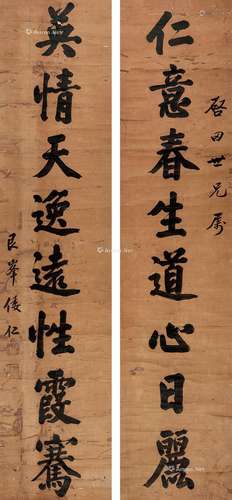 啓田世兄属
仁意春生道心日麗
英情天逸遠性霞騫
艮峯倭仁